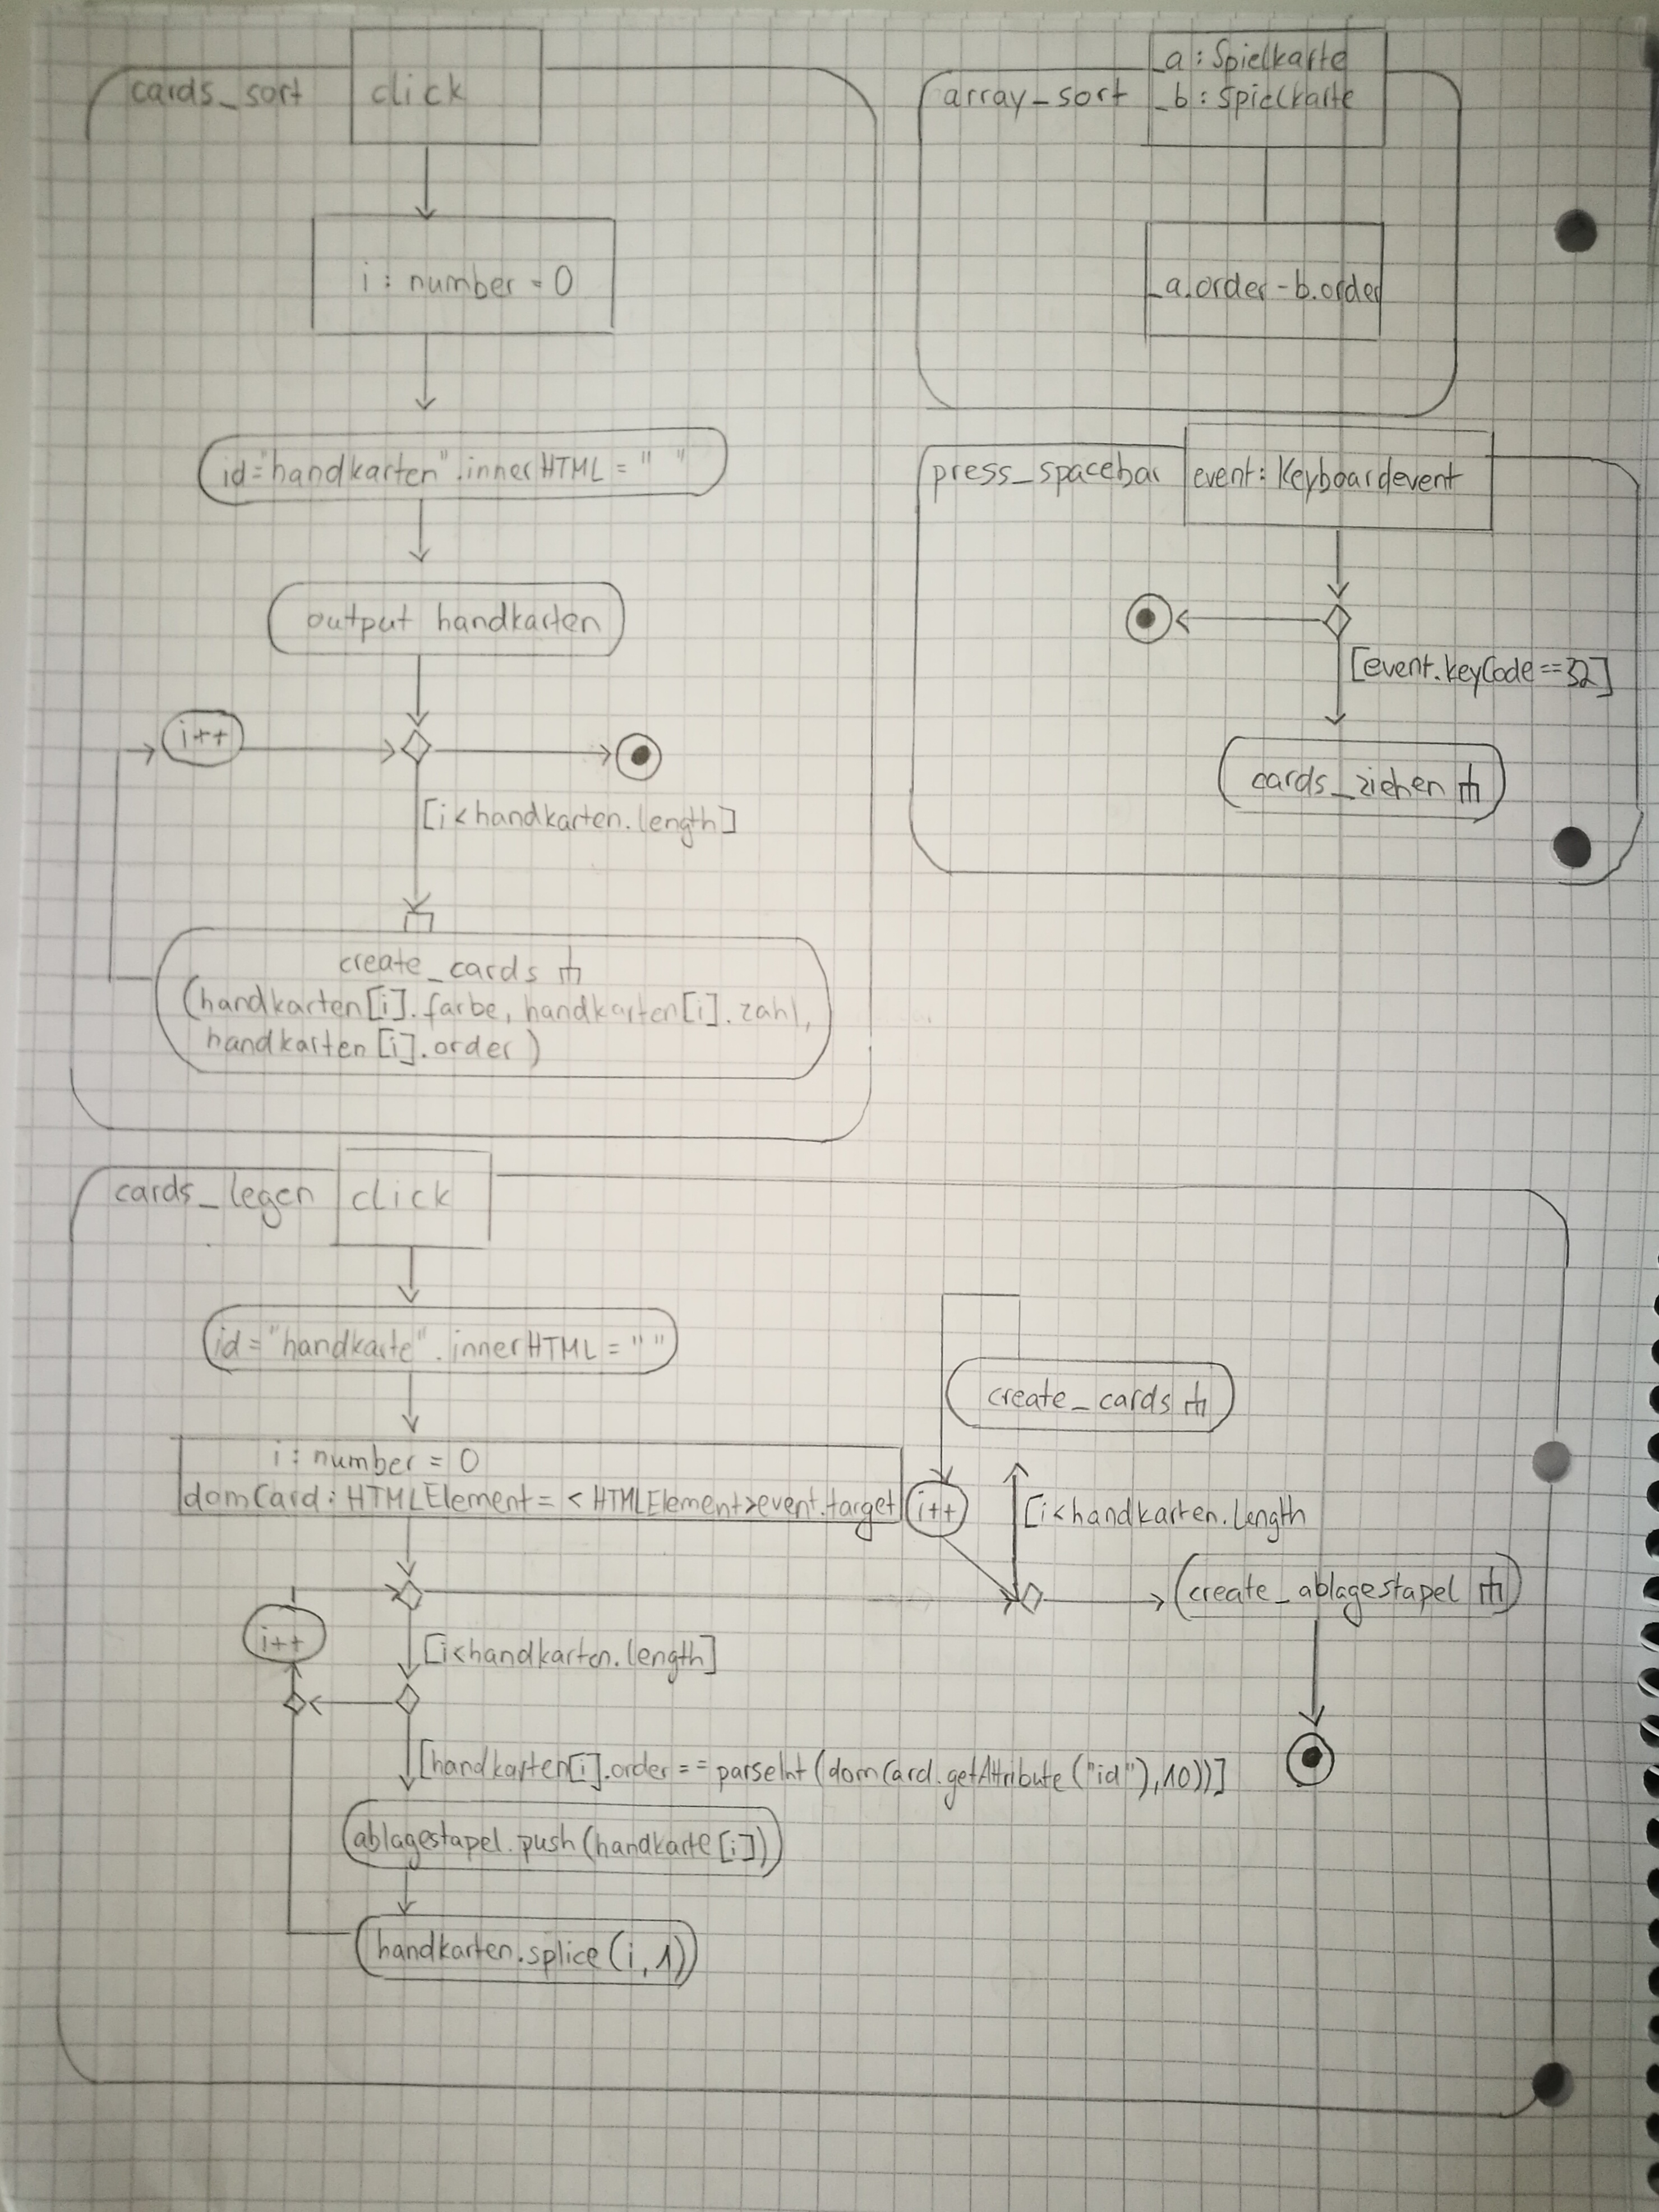 cards_sort
click
i : number = 0
id="handkarten".innerHTML = " "
output handkarten
i++
[i<handkarten.length]
create_cards
(handkarten[i].farbe, handkarten[i].zahl,
handkarten[i].order)
array_sort
_a : Spielkarte
_b : Spielkarte
_a.order - b.order
press_spacebar
event: Keyboardevent
[event.keyCode==32]
cards_ziehen
cards_legen
click
id="handkarte".innerHTML = " "
i : number = 0
domCard : HTMLElement = <HTMLElement>event.target
i++
[i<handkarten.length]
[handkarten[i].order == parseInt(domCard.getAttribute("id"),10))]
ablagestapel.push(handkarte[i])
handkarten.splice(i,1)
create_cards
i++
[i<handkarten.length
create_ablagestapel